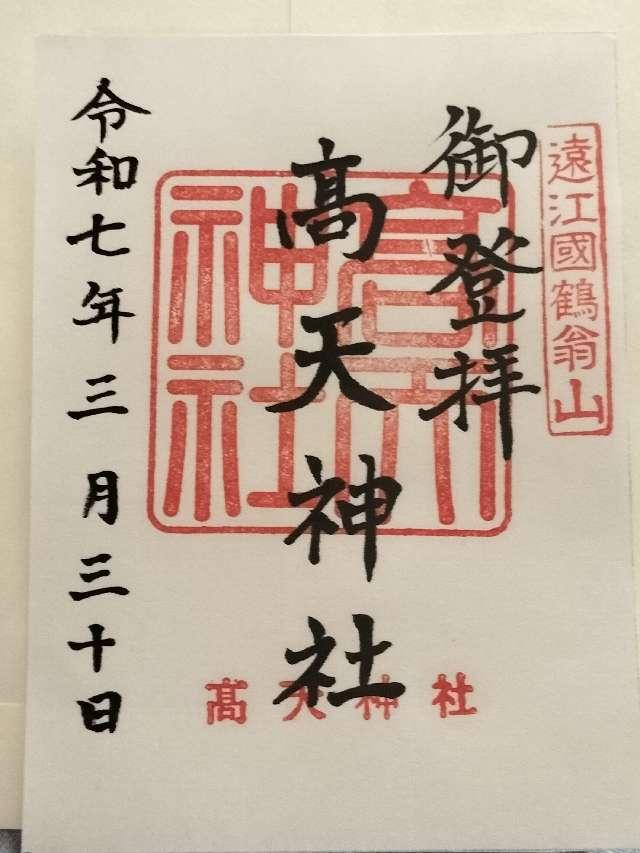 遠江國鶴翁山
御登拝
髙天神社
髙天神社
令和七年三月三十日
髙天神社